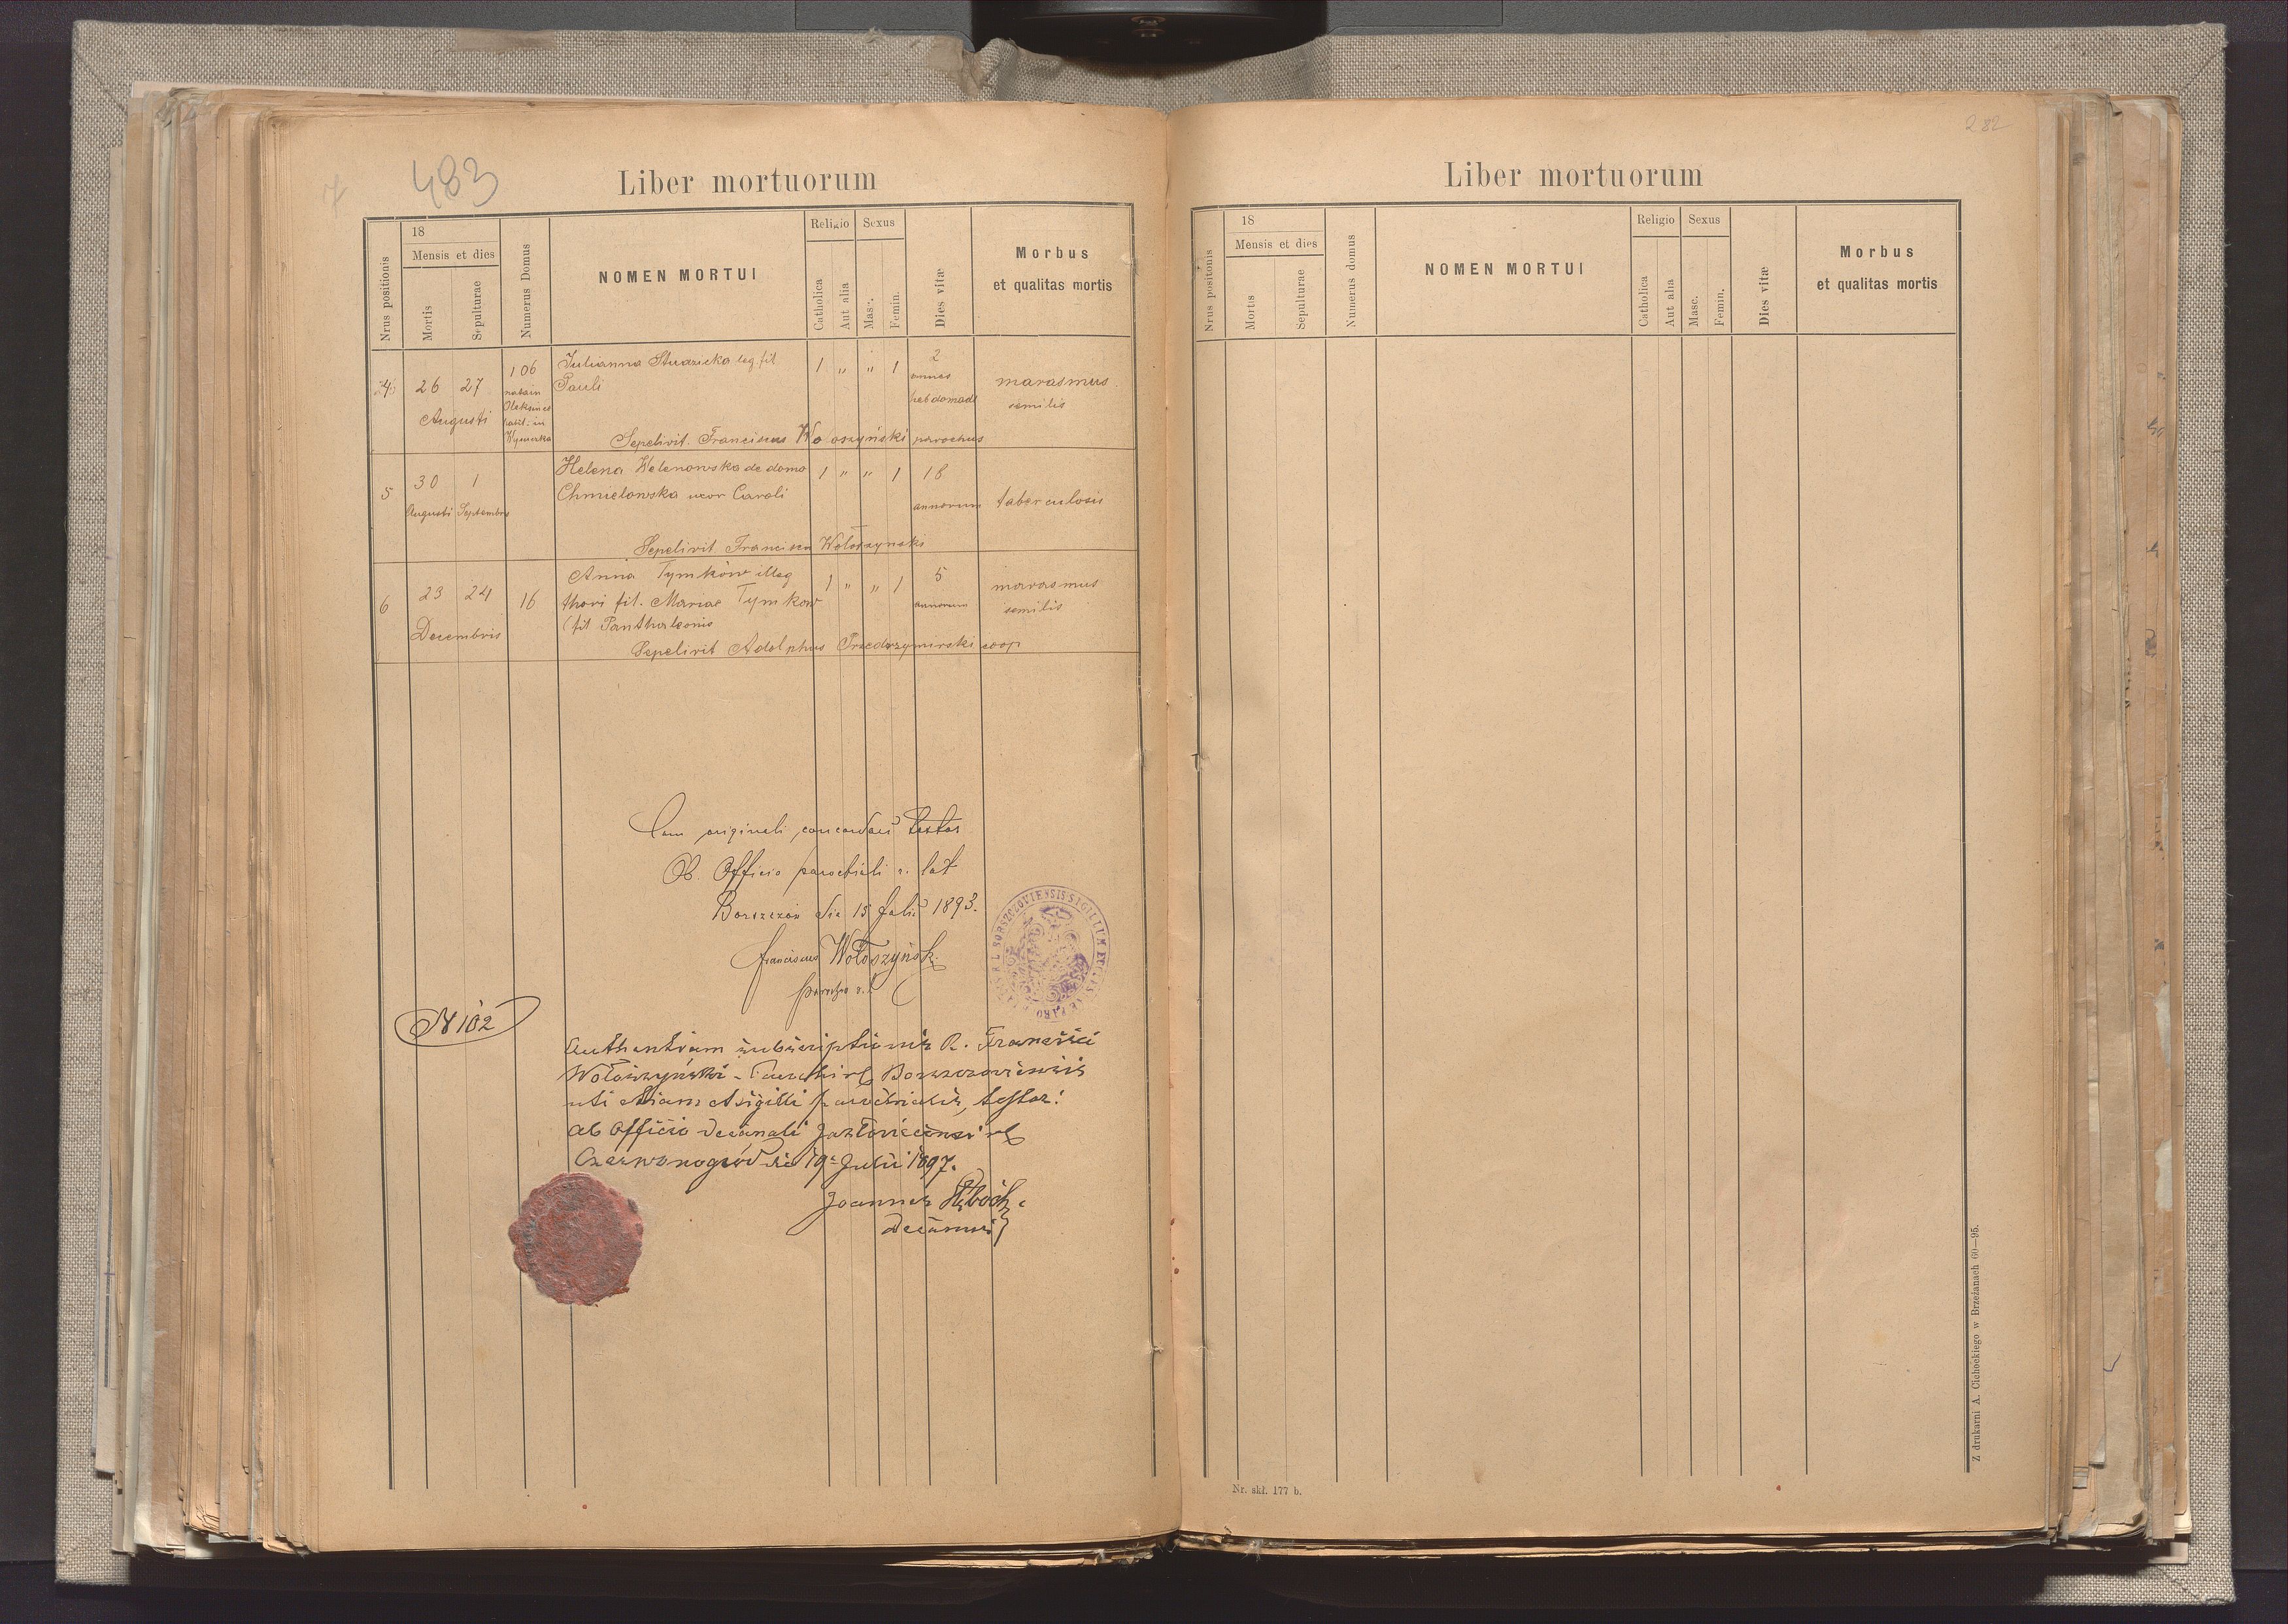 483
Liber mortuorum
Nrus positionis
18
Mensis et dies
Mortis
Sepulturae
Numerus Domus
NOMEN MORTUI
Religio
Catholica
Aut alia
Sexus
Masc.
Femin.
Dies vitæ
Morbus
et qualitas mortis
4 26 27 106 Julianna Studzicka leg fil. 1 " " 1 2
Pauli
Augusti
marasmus
Sepelivit. Franciscus Wołoszyński parochus
5 30 1 Helena Welenowska de domo 1 " " 1 18
Augusti Septembris Chmielowska uxor Caroli annorum tuberculosis
Sepelivit Wołoszynski
6 23 24 16 Anna Tymków illeg 1 " " 1 5 marasmus
thori fil. Mariae Tymkow annorum
Decembris (fil Panthaleonis
Sepelivit Adolphus coop
Cum originali testor
Ab Officio parochiali r. lat
Borszczów die 15 Julii 1893.
Franciscus Wołoszyński
N 102
subscriptionis R. Francisci
Wołoszyński
uti etiam sigilli parochialis, testor:
ab Officio decanali
Czerwonogród die 19 Julii 1897.
Joannes
decanus
282
Liber mortuorum
Nrus positonis
18
Mensis et dies
Mortis
Sepulturae
Numerus domus
NOMEN MORTUI
Religio
Catholica
Aut alia
Sexus
Masc.
Femin.
Dies vitæ
Morbus
et qualitas mortis
Z drukarni A. Cichockiego w Brzeżanach 60—95.
Nr. skł. 177 b.